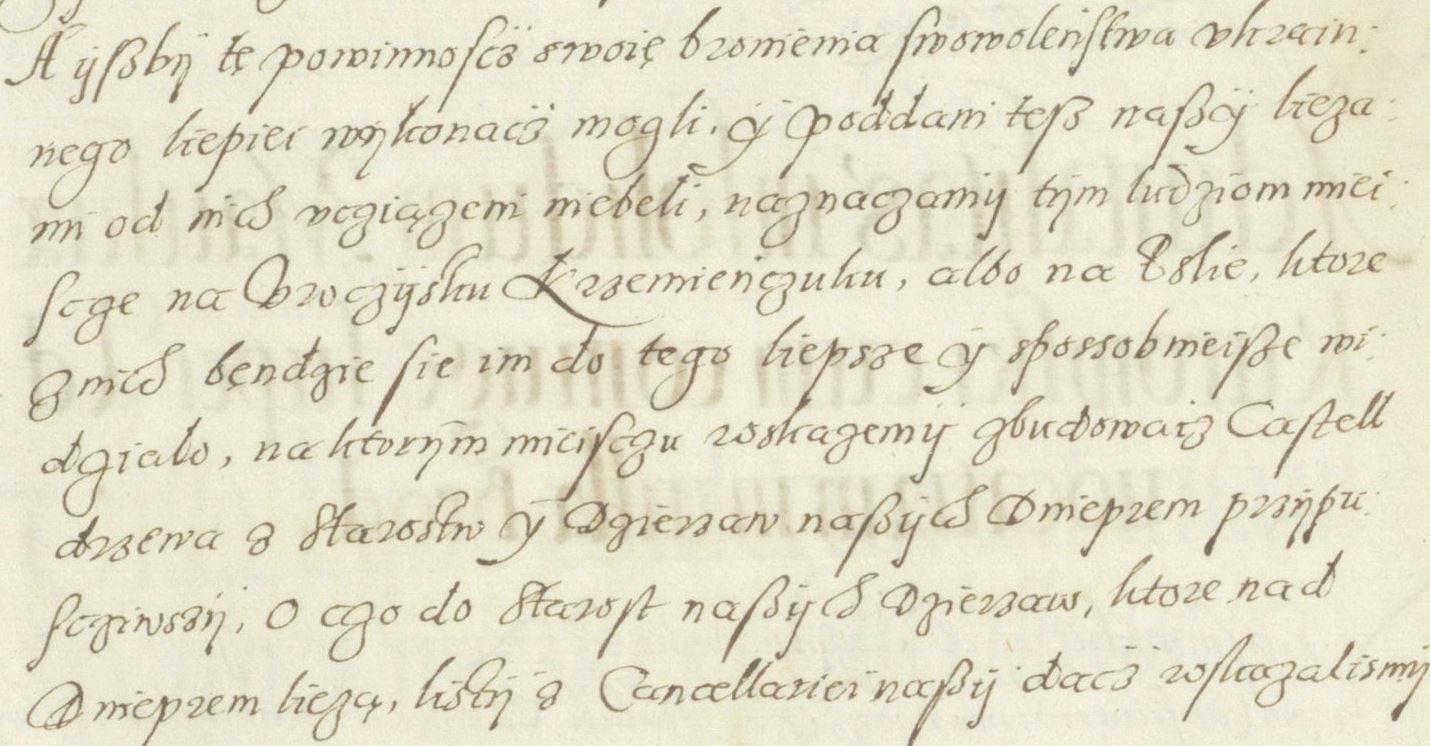 A yſzbÿ tę powinnoſcz swoię bronienia ſwowolenſtwa vkrain:
nego liepiei wÿkonacz mogli, ÿ poddani teſz naßÿ lieza:
mi od nich vcziązeni niebeli, naznaczamÿ tÿm ludziom miei:
ſcze na Vroczÿsku Krzemieńczuku, albo na Pslie, ktore
z nich będzie ſie im do tego liepsze ÿ sposſobnieiſze wi:
dzialo, na ktorÿm mieiſczu roskazemÿ zbudowacz Caſtell
drzewa z Staroſtw ÿ Dzierzaw naßÿch Dnieprem przÿpu:
ſcziwszÿ, o czo do Staroſt naßÿch Dzierzaw, ktore nad
Dnieprem liezą, liſtÿ z Cancellariei naßÿ dacz roskazalismÿ